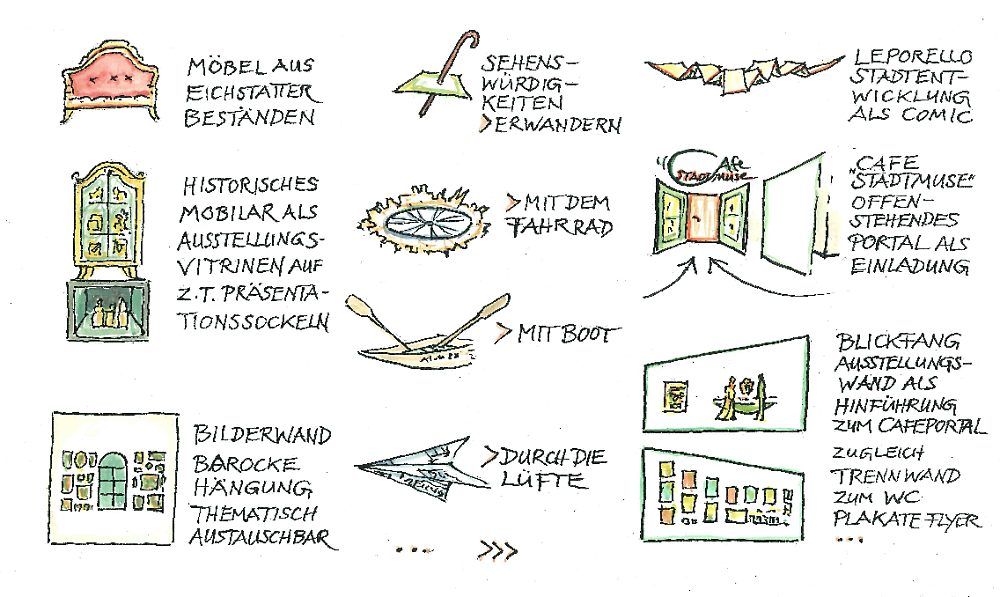 MÖBEL AUS
EICHSTATTER
BESTÄNDEN
HISTORISCHES
MOBILAR ALS
AUSSTELLUNGS-
VITRINEN AUF
Z.T. PRÄSENTA-
TIONSSOCKELN
BILDERWAND
BAROCKE
HÄNGUNG
THEMATISCH
AUSTAUSCHBAR
SEHENS-
WÜRDIG-
KEITEN
>ERWANDERN
>MIT DEM
FAHRRAD
>MIT BOOT
>DURCH DIE
LÜFTE
... >>>
LEPORELLO
STADTENT-
WICKLUNG
ALS COMIC
"Cafe
STADTMUSE
„CAFE
STADTMUSE"
OFFEN-
STEHENDES
PORTAL ALS
EINLADUNG
BLICKFANG
AUSSTELLUNGS-
WAND ALS
HINFÜHRUNG
ZUM CAFEPORTAL
ZUGLEICH
TRENNWAND
ZUM WC
PLAKATE FLYER
...